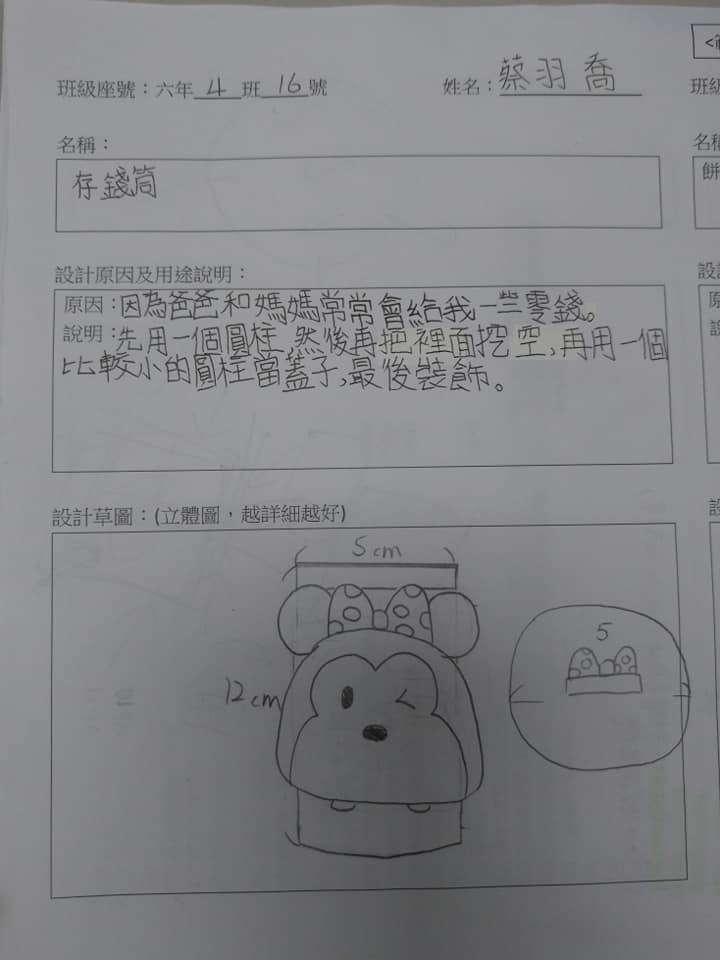 班級座號：六年 4 班 16 號
姓名：蔡羽喬
名稱：
存錢筒
設計原因及用途說明：
原因：因為爸爸和媽媽常常會給我一些零錢。
說明：先用一個圓柱,然後再把裡面挖空,再用一個
比較小的圓柱當蓋子,最後裝飾。
設計草圖：(立體圖，越詳細越好)
5cm
12cm
5
班級
名稱
餅
設計
原
說
設